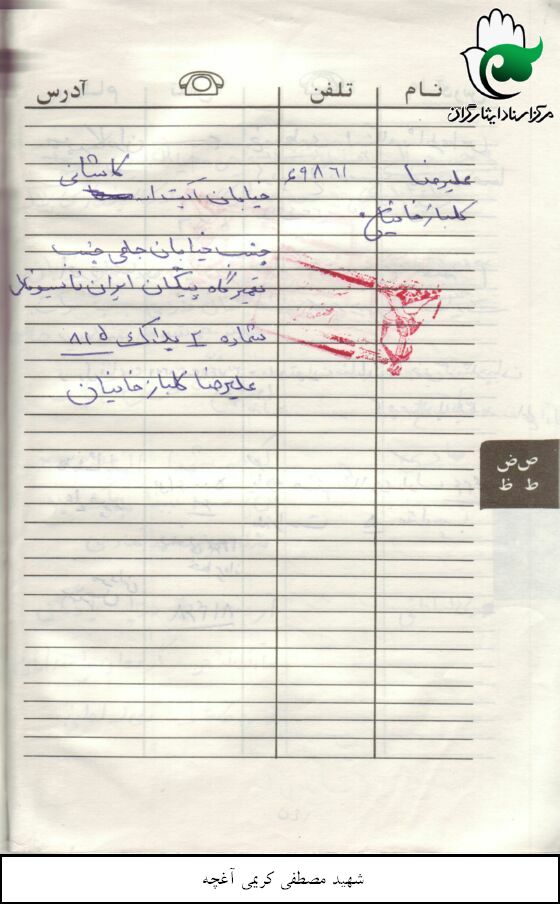 مرکز اسناد ایثارگران
نام تلفن آدرس
علیرضا ۶۹۸۶۱ کاشانی
خیابان آیت ا...
گلبازخانیان
جنب خیابان جامی جنب
تعمیرگاه پیکان ایران ناسیونال
شماره ۲ پلاک
علیرضا گلبازخانیان
ص ض
ط ظ
شهید مصطفی کریمی آغچه